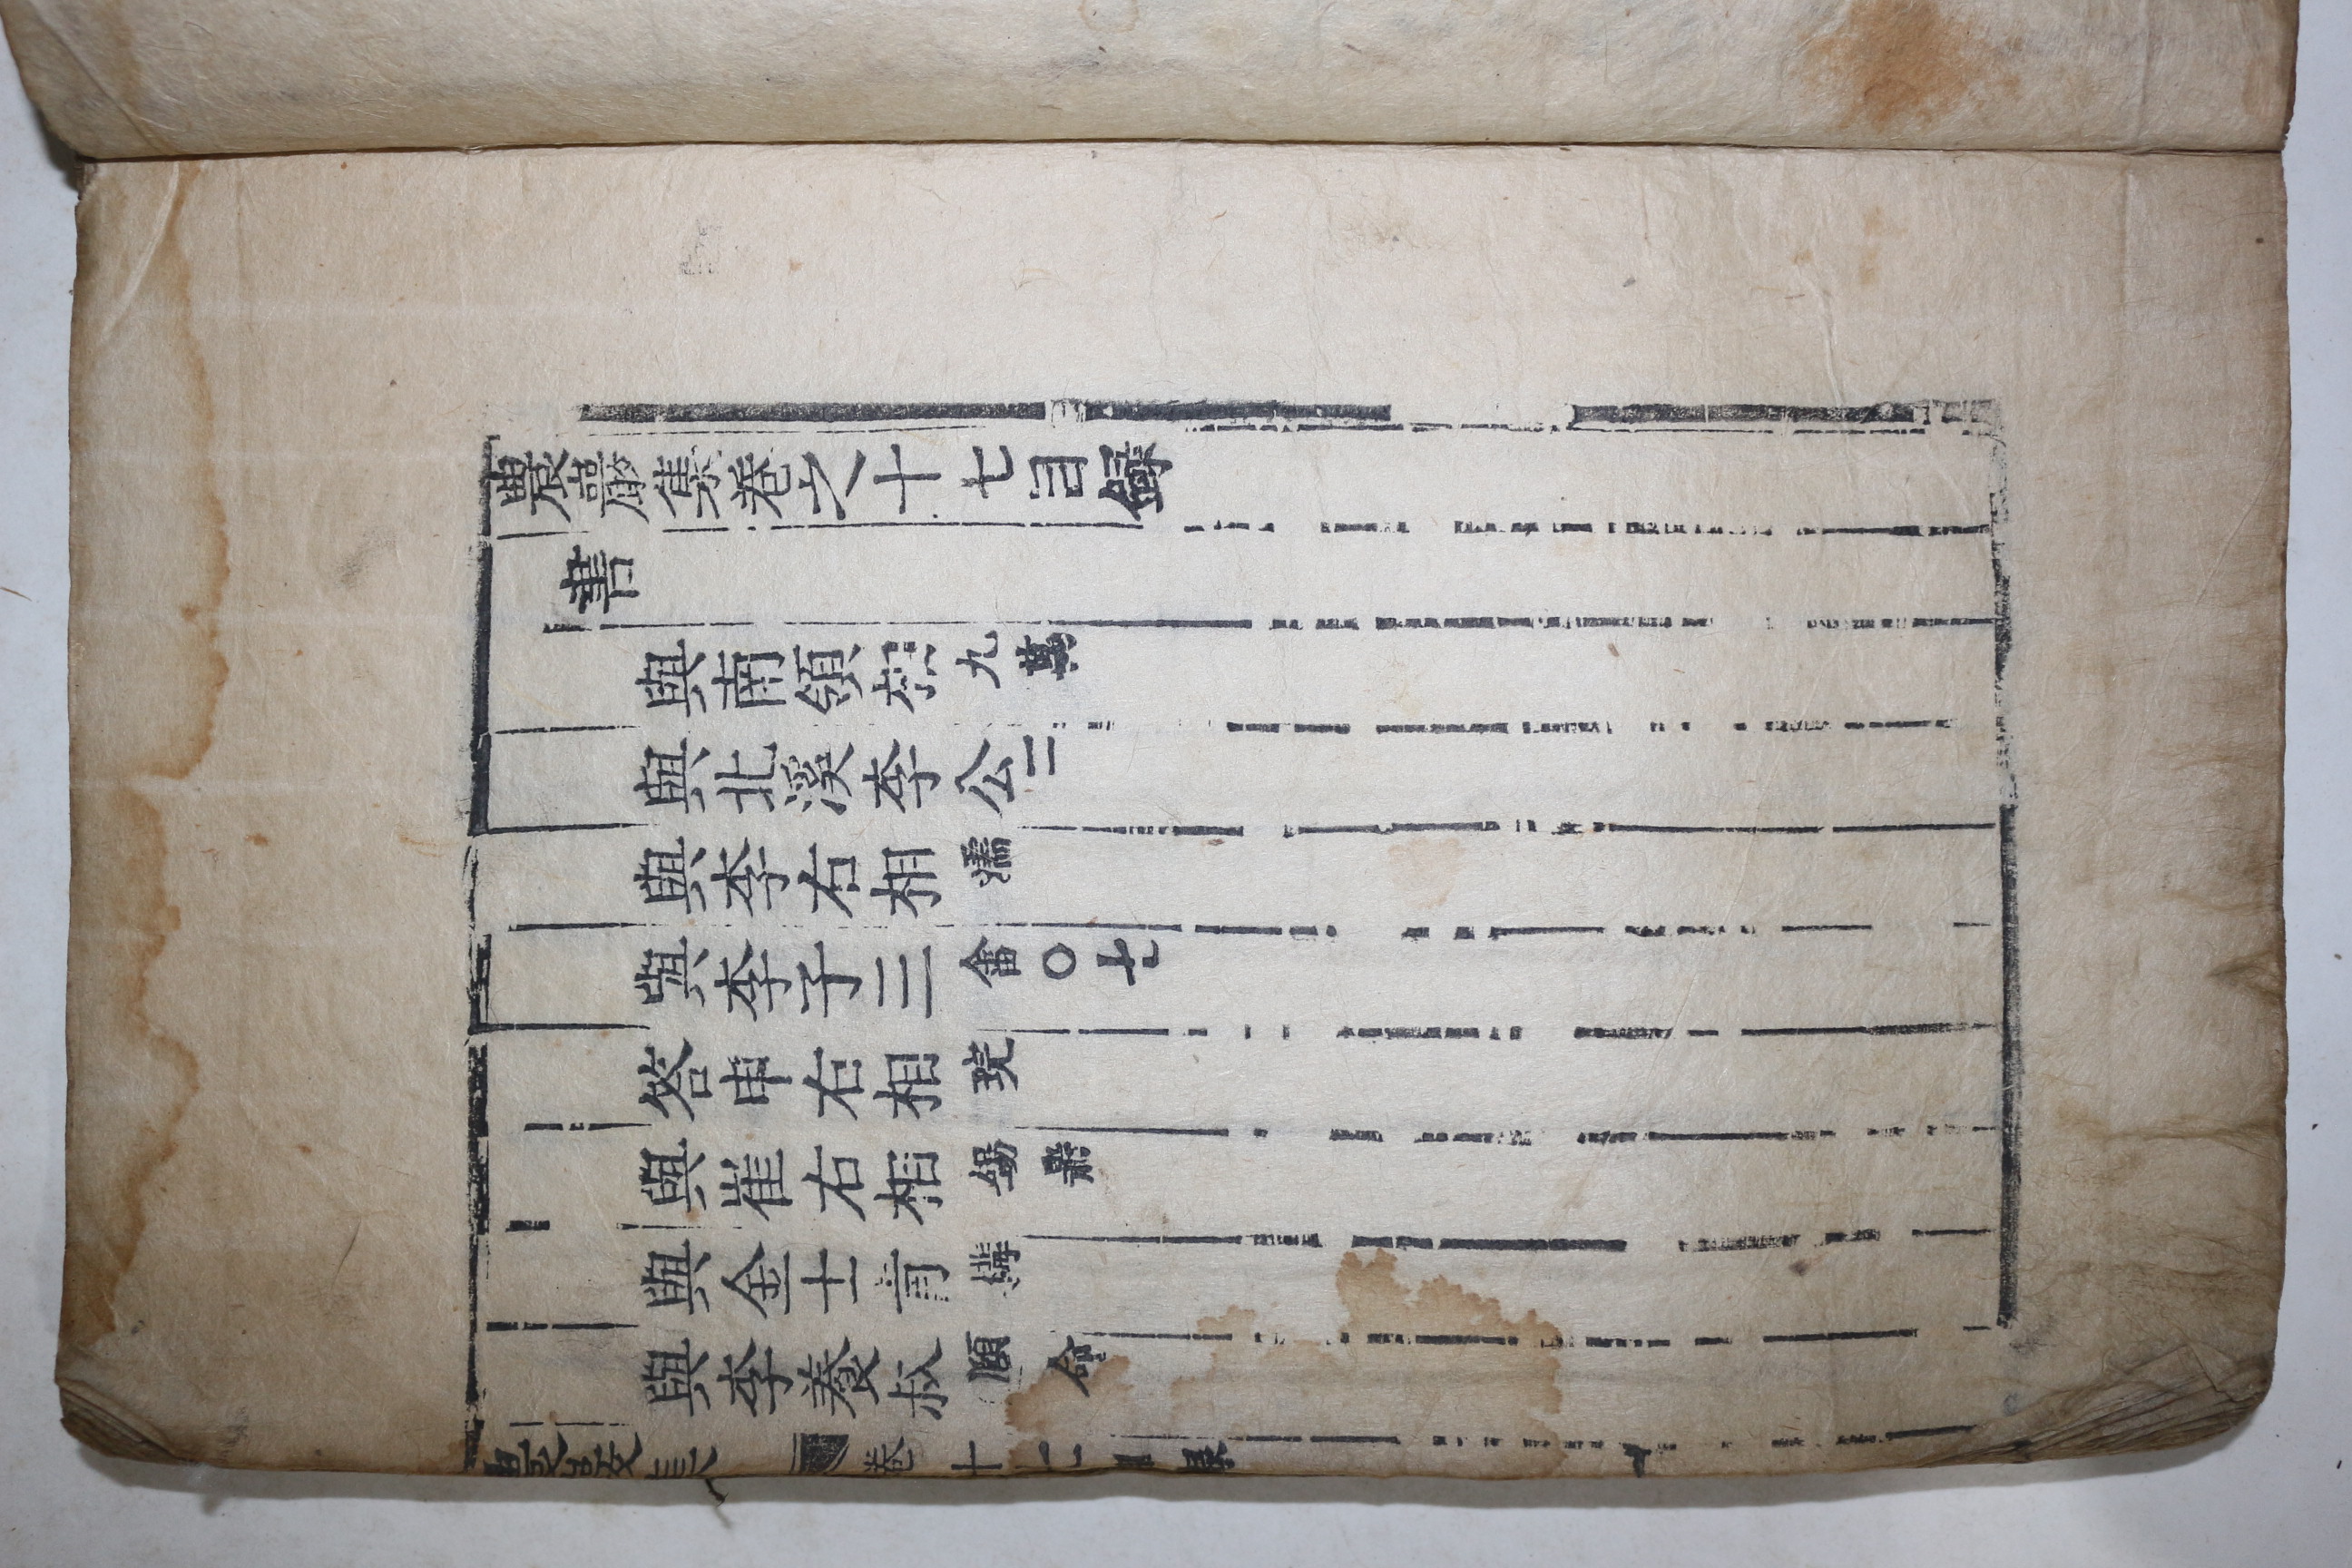 農巖集卷之十七目録
書
與南領相九萬
與北溪李公二
與李右相濡
與李子三畬○七
答申右相琓
與崔右相錫鼎
與金士肯構
與李養叔頤命
農巖集 卷十七目録